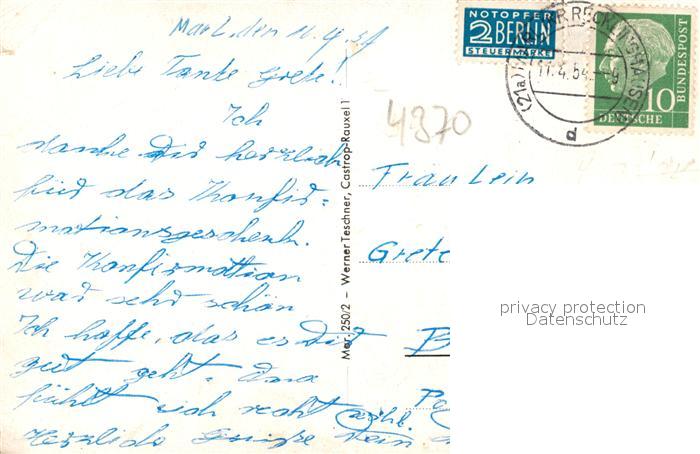 Marl, den 11. 4. 54
Liebe Tante Grete!
Ich
danke Dir herzlich
für das Konfir=
mationsgeschenk.
Die Konfirmation
war sehr schön
Ich hoffe, das es Dir
gut geht.
fühlt sich recht wohl.
Herzliche Grüße Dein
Mar. 250/2 – Werner Teschner, Castrop-Rauxel 1
4370
NOTOPFER
2 BERLIN
STEUERMARKE
(21a) MARL (KR. RECKLINGHAUSEN)
11.4.54.--9
d
10
DEUTSCHE
BUNDESPOST
Fräulein
Grete
B
privacy protection
Datenschutz